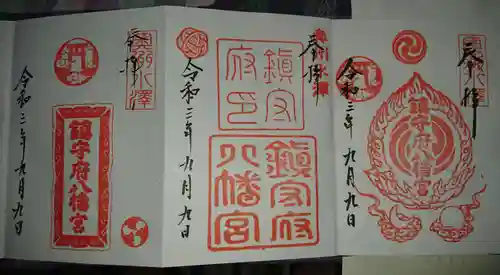 奉拝
奥州水澤
鎮守府八幡宮
令和三年九月九日
奉拝
鎮守
府印
鎮守府
八幡宮
令和三年九月九日
奉拝
鎮守府八幡宮
令和三年九月九日